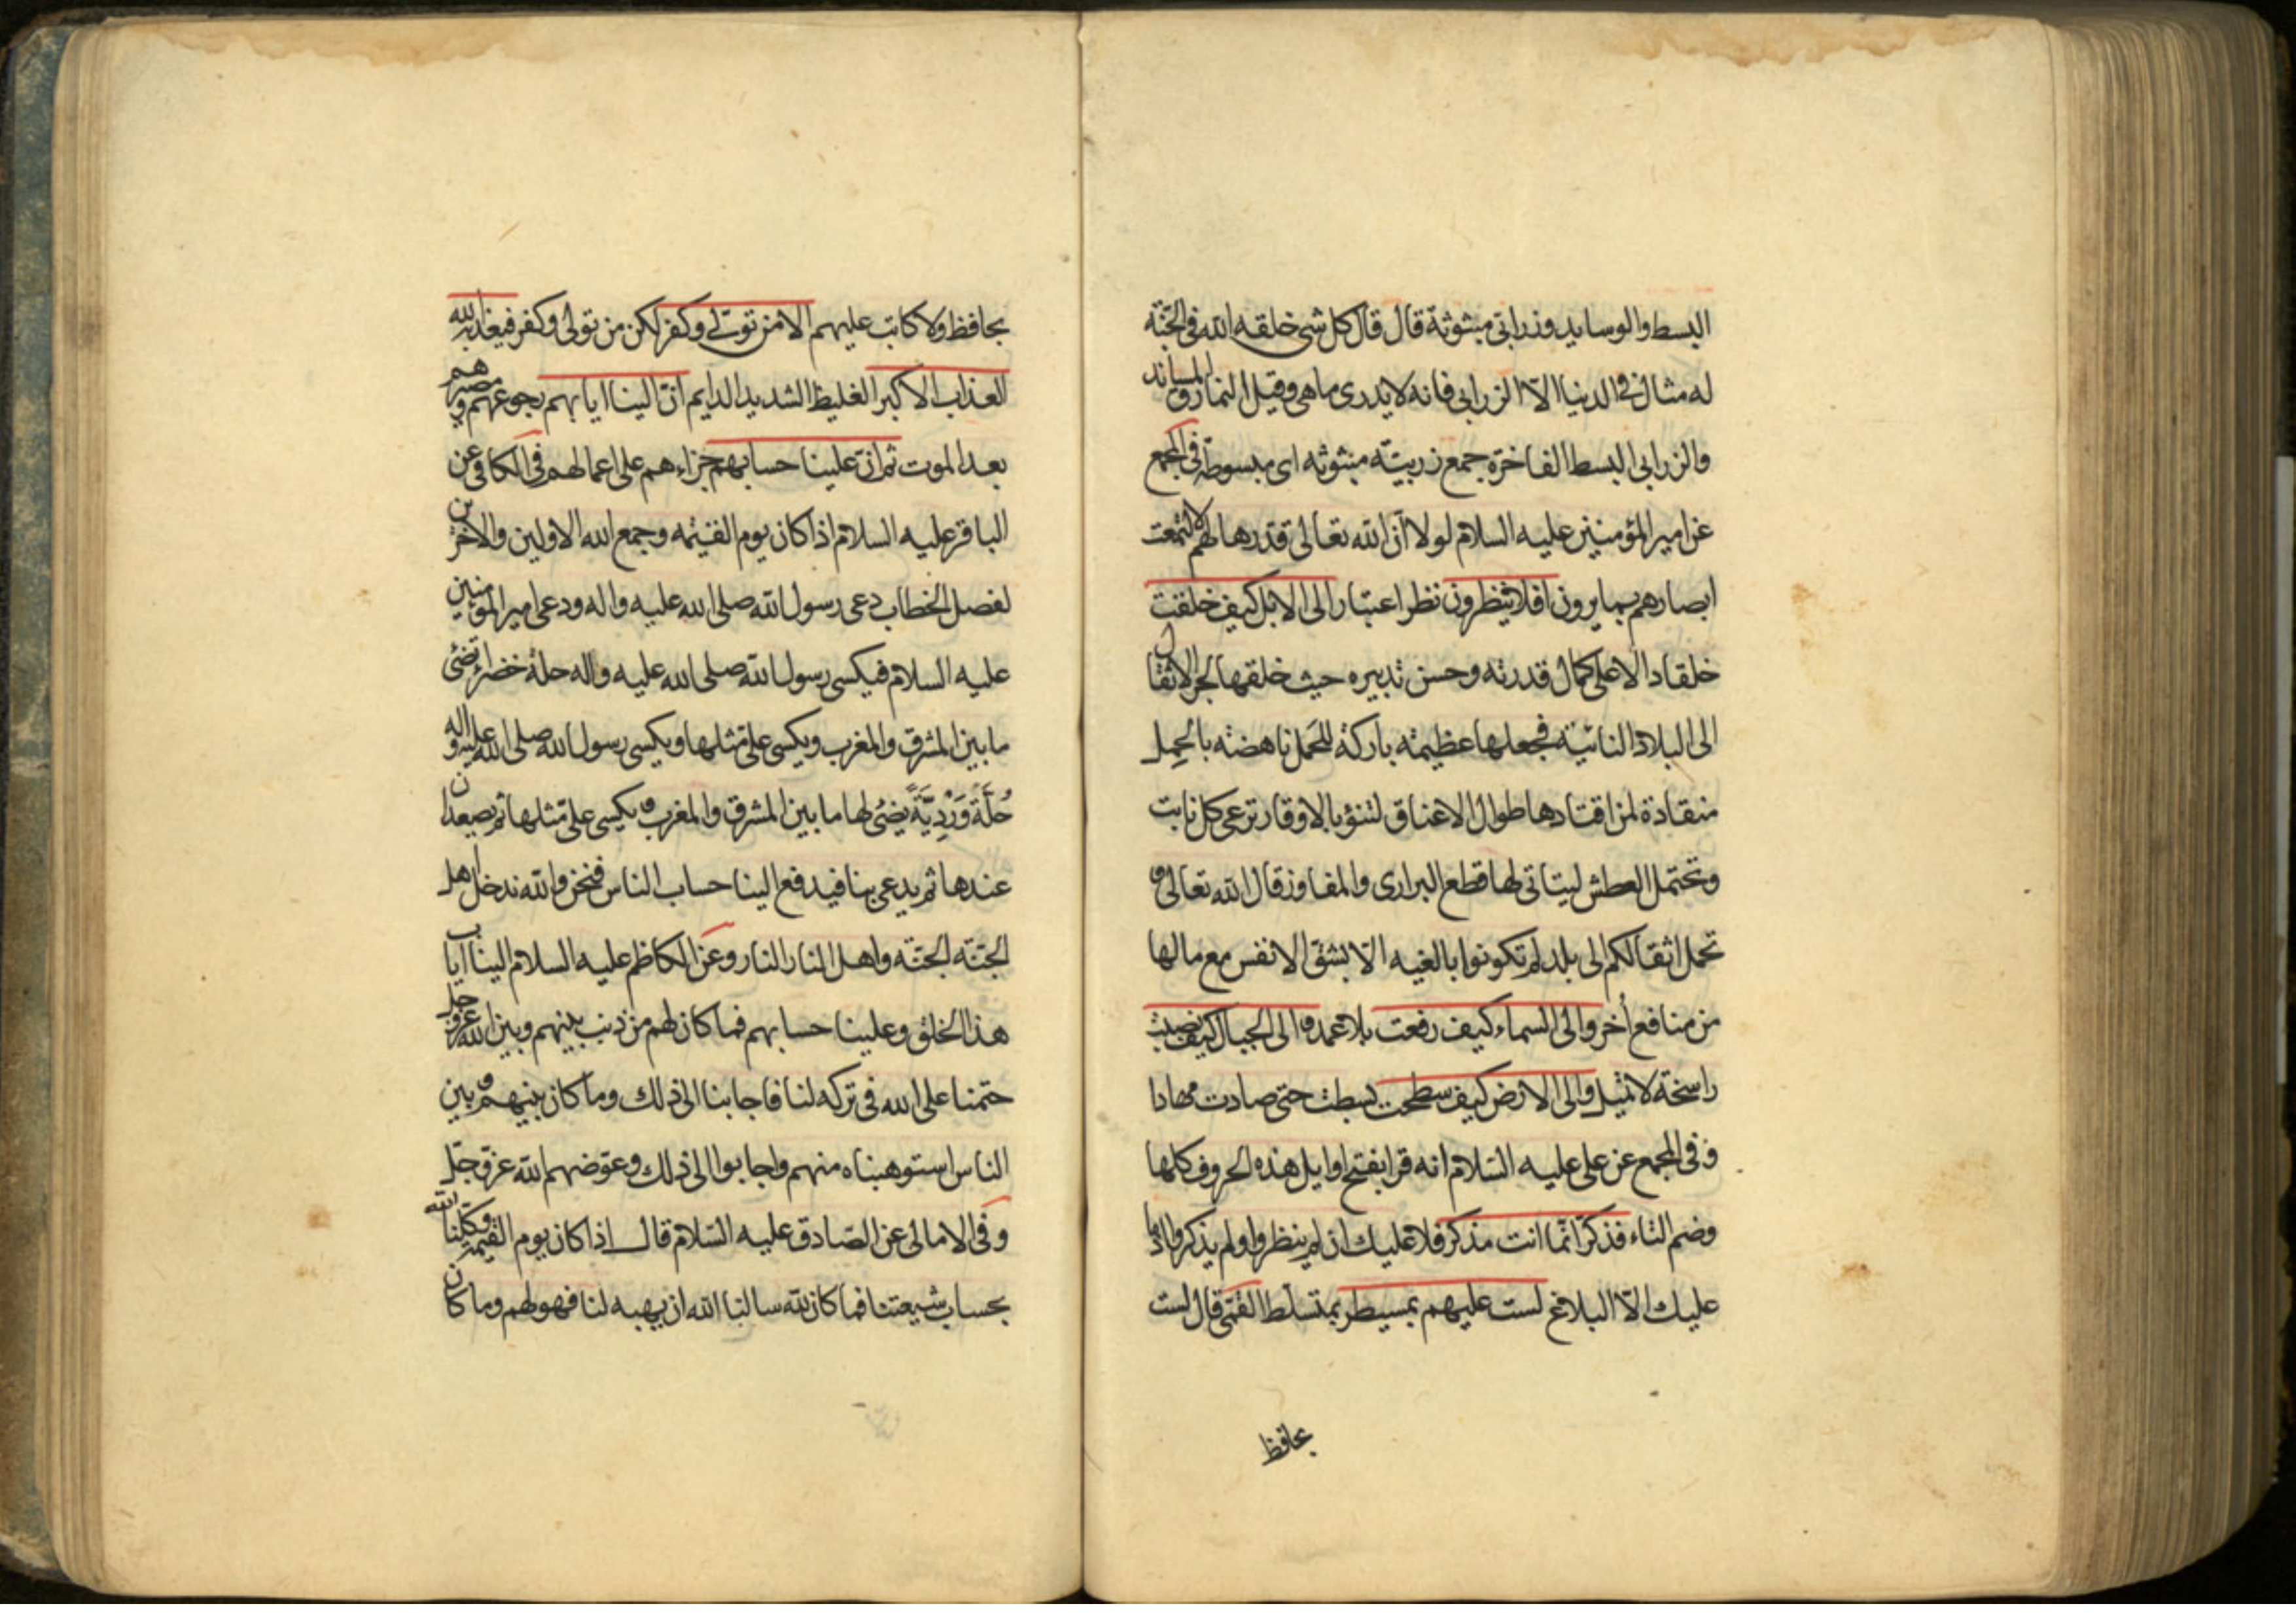 البسط والوسايد وزرابى مبثوثة قال قال كل شى خلقه الله فى الجنة
له مثال فى الدنيا الا الزرابى فانه لا يدرى ما هى وقيل النمارق المساند
والزرابى البسط الفاخرة جمع زربيته مبثوثه اى مبسوطة فى المجمع
عن امير المؤمنين عليه السلام لولا ان الله تعالى قدرها لهم لالتمعت
ابصارهم بما يرون افلا ينظرون نظر اعتبار الى الابل كيف خلقت
خلقا دالا على كمال قدرته وحسن تدبيره حيث خلقها لجر الاثقال
الى البلاد النائية فجعلها عظيمته باركة للحمل ناهضته بالحمل
منقادة لمن اقتادها طوال الاعناق لتنؤ بالاوقار ترعى كل نابت
وتحتمل العطش ليتاتى لها قطع البرارى والمفاوز قال الله تعالى و
تحمل اثقالكم الى بلد لم تكونوا بالغيه الا بشق الانفس مع ما لها
من منافع أخر والى السماء كيف رفعت بلا عمد و الى الجبال كيف نصبت
راسخة لا تميل والى الارض كيف سطحت بسطت حتى صادت مهادا
وفى المجمع عن على عليه السلام انه قرا بفتح اوايل هذه الحروف كلها
وضم التاء فذكر انما انت مذكر فلا عليك ان لم ينظروا ولم يذكروا اذ ما
عليك الا البلاغ لست عليهم بمسيطر بمتسلط القمى قال لست
بحافظ
بحافظ ولا كاتب عليهم الا من تولى وكفر لكن من تولى وكفر فيعذبه الله
العذاب الاكبر الغليظ الشديد الدايم ان الينا ايابهم رجوعهم ومصيرهم
بعد الموت ثم ان علينا حسابهم جزاءهم على اعمالهم فى الكافى عن
الباقر عليه السلام اذا كان يوم القيٰمه وجمع الله الاولين والاخرين
لفصل الخطاب دعى رسول الله صلى الله عليه واله ودعى امير المؤمنين
عليه السلام فيكسى رسول الله صلى الله عليه واله حلة خضراء تضئ
ما بين المشرق والمغرب ويكسى على مثلها ويكسى رسول الله صلى الله عليه واله
حُلَّةً وَرْدِيَّةً يضئ لها ما بين المشرق والمغرب و يكسى على مثلها ثم يصعدان
عندها ثم يدعى بنا فيدفع الينا حساب الناس فنحن والله ندخل اهل
الجنة الجنة واهل النار النار وعن الكاظم عليه السلام الينا اياب
هذا الخلق وعلينا حسابهم فما كان لهم من ذنب بينهم وبين الله عز وجل
حتمنا على الله فى تركه لنا فاجابنا الى ذلك وما كان بينهم و بين
الناس استوهبناه منهم واجابوا الى ذلك وعوضهم الله عز وجل
وفى الامالى عن الصادق عليه السلام قال اذا كان يوم القيمة وكلنا الله
بحساب شيعتنا فما كان لله سالنا الله ان يهبه لنا فهو لهم وما كان